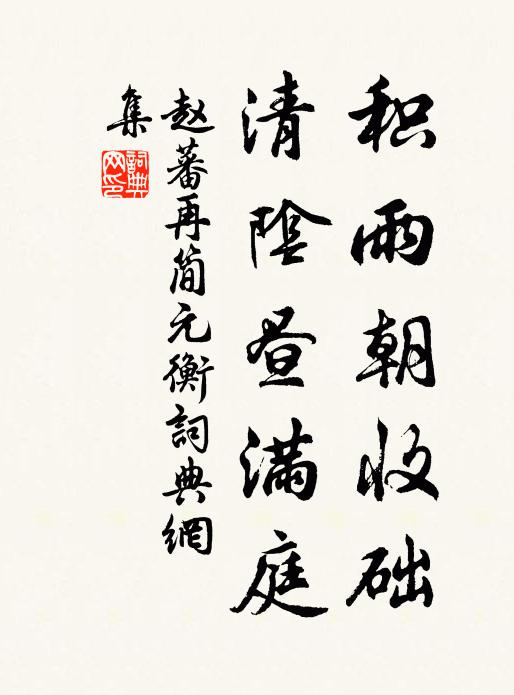 积雨朝收础
清陰昼满庭
赵蕃再简元衡詞典網
集
詞典
网印